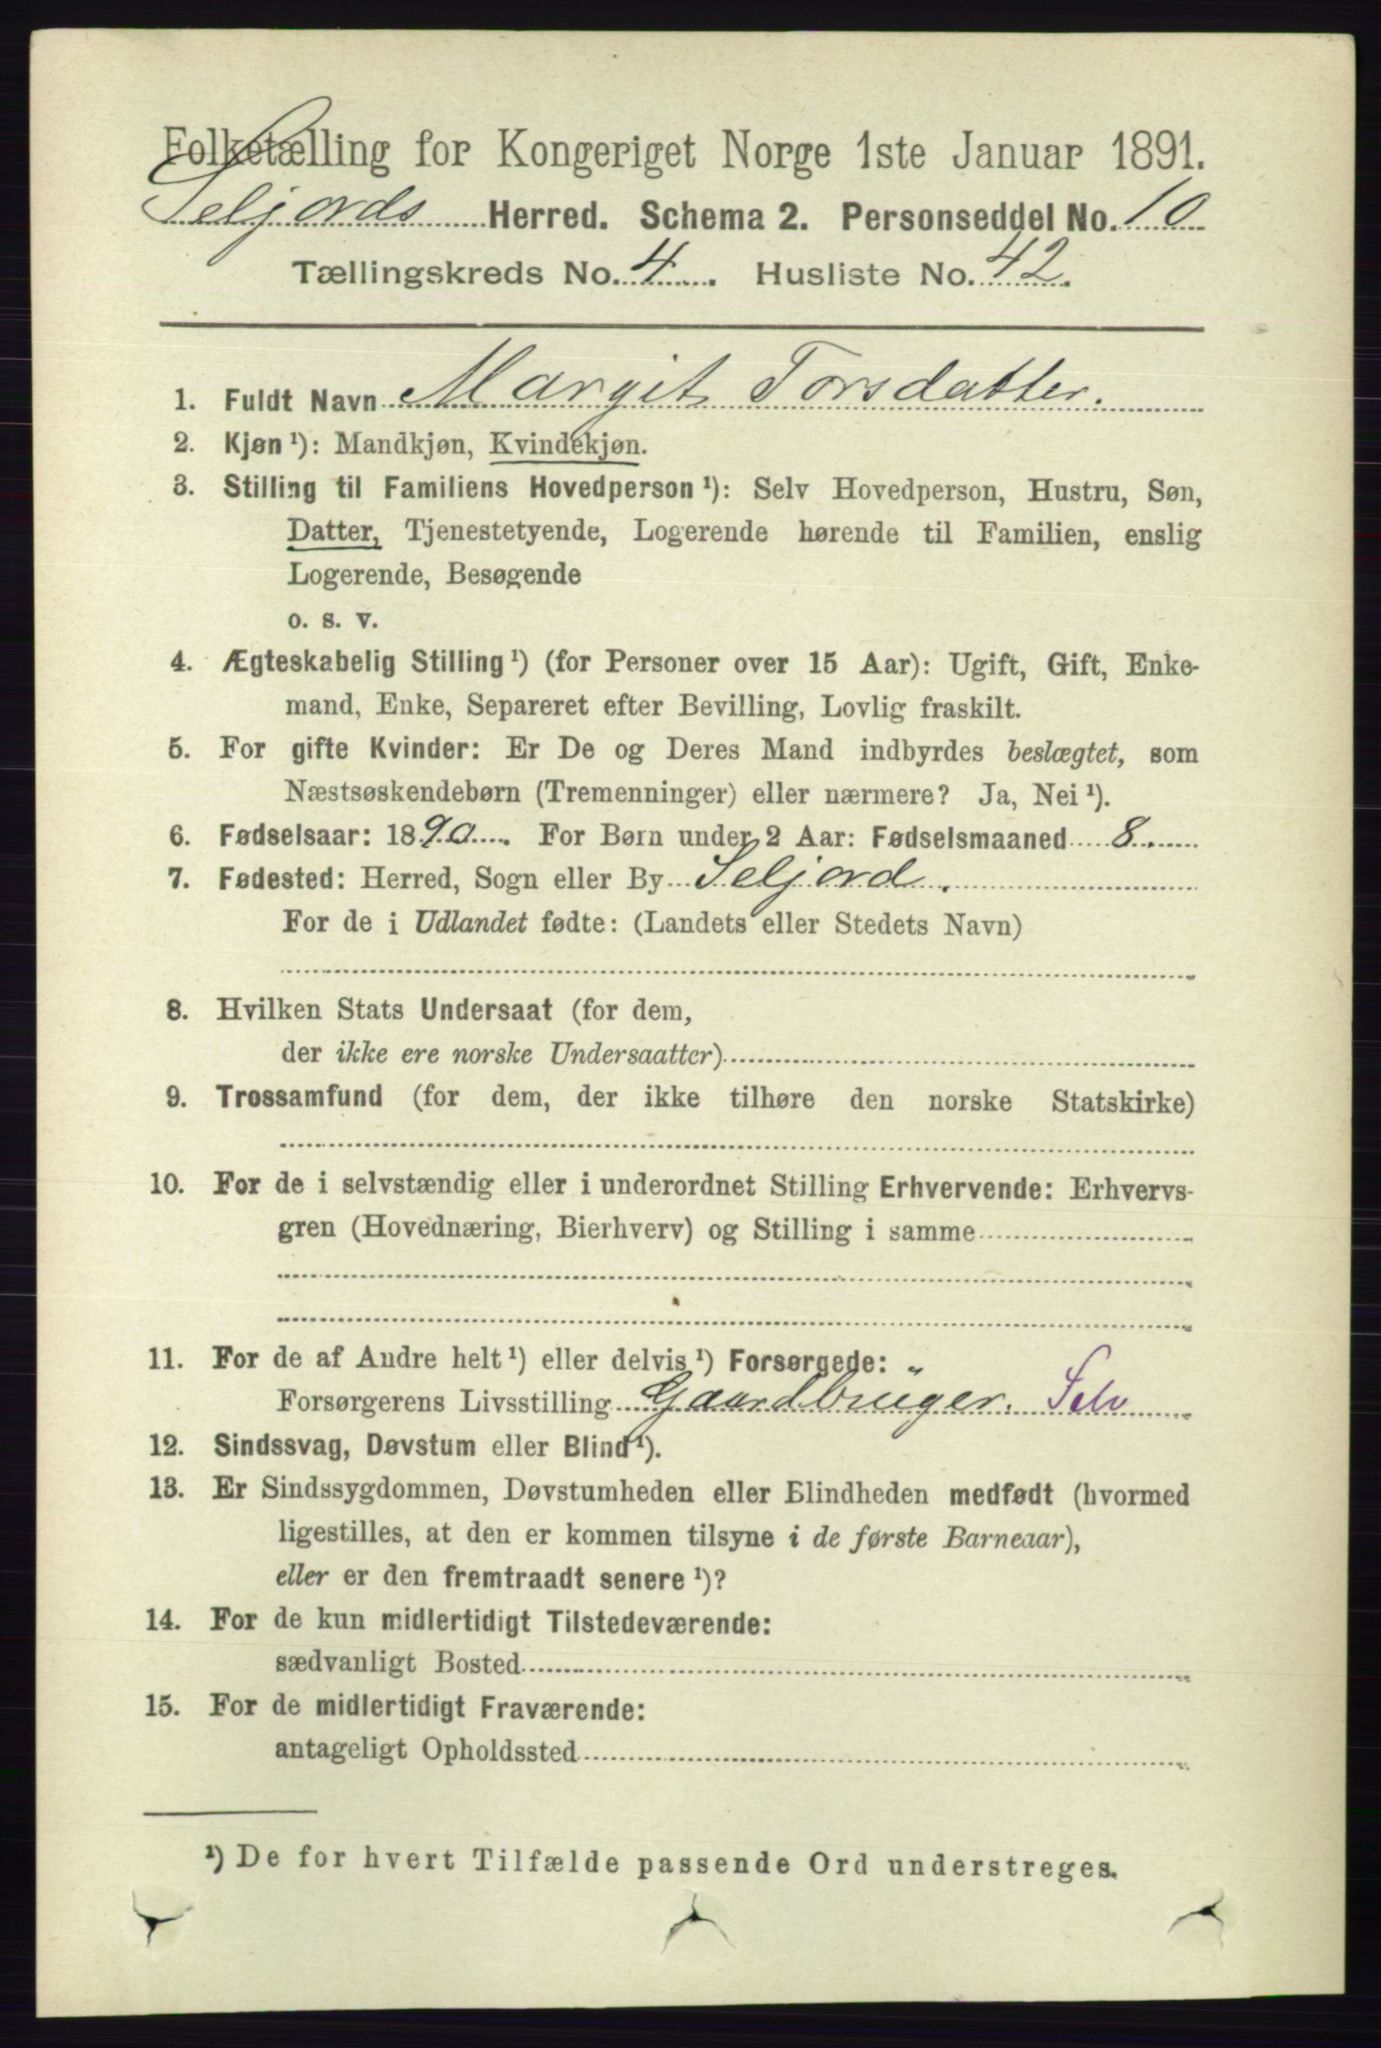 Folketælling for Kongeriget Norge 1ste Januar 1891.
Seljords Herred. Schema 2. Personseddel No. 10
Tællingskreds No. 4. Husliste No. 42.
1. Fuldt Navn Margit Torsdatter.
2. Kjøn ¹): Mandkjøn, Kvindekjøn.
3. Stilling til Familiens Hovedperson ¹): Selv Hovedperson, Hustru, Søn,
Datter, Tjenestetyende, Logerende hørende til Familien, enslig
Logerende, Besøgende
o. s. v.
4. Ægteskabelig Stilling ¹) (for Personer over 15 Aar): Ugift, Gift, Enke-
mand, Enke, Separeret efter Bevilling, Lovlig fraskilt.
5. For gifte Kvinder: Er De og Deres Mand indbyrdes beslægtet, som
Næstsøskendebørn (Tremenninger) eller nærmere? Ja, Nei ¹).
6. Fødselsaar: 1890. For Børn under 2 Aar: Fødselsmaaned 8.
7. Fødested: Herred, Sogn eller By Seljord.
For de i Udlandet fødte: (Landets eller Stedets Navn)
8. Hvilken Stats Undersaat (for dem,
der ikke ere norske Undersaatter)
9. Trossamfund (for dem, der ikke tilhøre den norske Statskirke)
10. For de i selvstændig eller i underordnet Stilling Erhvervende: Erhvervs-
gren (Hovednæring, Bierhverv) og Stilling i samme
11. For de af Andre helt ¹) eller delvis ¹) Forsørgede: "
Forsørgerens Livsstilling Gaardbrüger. Selv
12. Sindssvag, Døvstum eller Blind ¹).
13. Er Sindssygdommen, Døvstumheden eller Blindheden medfødt (hvormed
ligestilles, at den er kommen tilsyne i de første Barneaar),
eller er den fremtraadt senere ¹)?
14. For de kun midlertidigt Tilstedeværende:
sædvanligt Bosted
15. For de midlertidigt Fraværende:
antageligt Opholdssted
¹) De for hvert Tilfælde passende Ord understreges.